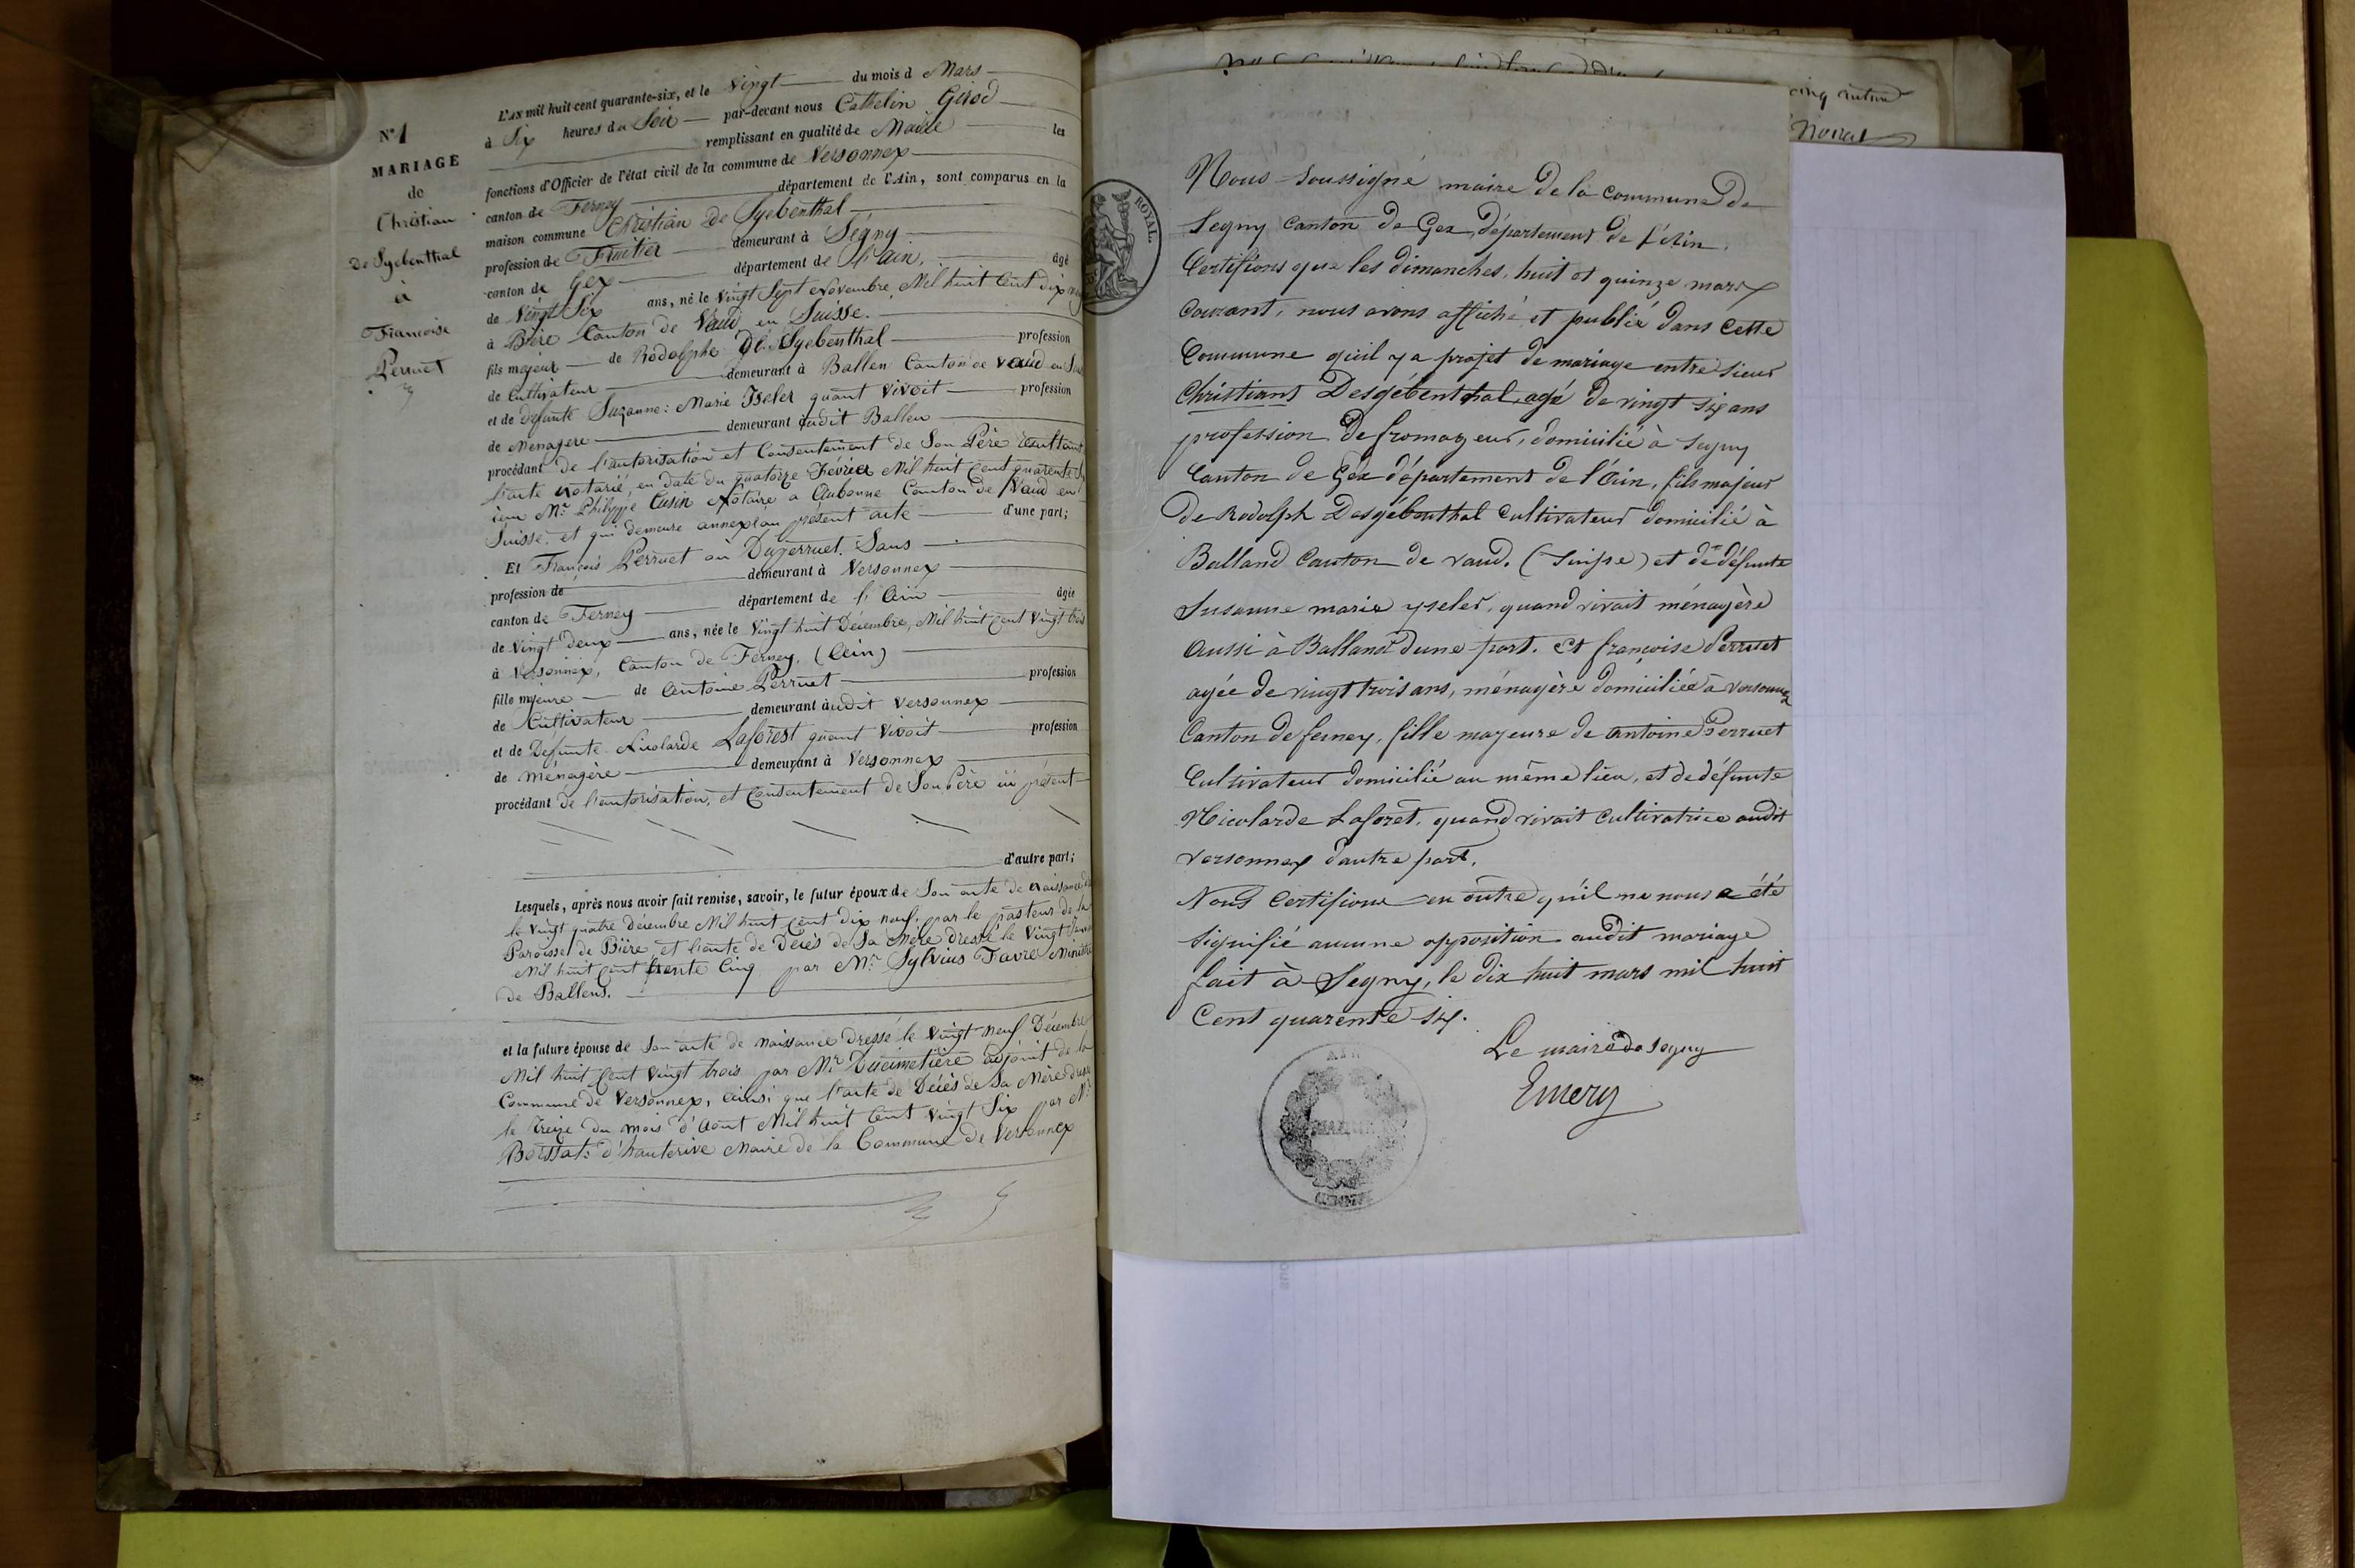 N° 1
MARIAGE
de
Christian
de Syebenthal
à
Francoise
Perruet
L'AN mil huit cent quarante-six, et le Vingt du mois d Mars
à Six heures du Soir par-devant nous Cathelin Girod
remplissant en qualité de Maire les
fonctions d'Officier de l'état civil de la commune de Versonnex
canton de Ferney département de l'Ain, sont comparus en la
maison commune Christian De Syebenthal
profession de Fruitier demeurant à Ségny
canton de Gex département de l'ain, âgé
de Vingt Six ans, né le Vingt Sept Novembre Mil huit Cent dix
à Bière Canton de Vaud en Suisse.
fils majeur de Rodolphe De Syebenthal profession
de Cultivateur demeurant à Ballen Canton de Vaud en
et de défunte Suzanne: Marie Iseler quant Vivoit profession
de Ménagere demeurant audit Ballen
procédant de l'autorisation et Consentement de Son Père résultant
l'acte Notarié, en date du quatorze Février Mil huit Cent quarente
Mr. Philippe Cusin Notaire a Aubonne Canton de Vaud en
Suisse. et qui demeure annexé au présent acte d'une part;
Et François Perruet ou Duperruet. Sans
profession de demeurant à Versonnex
canton de Ferney département de l'Ain âgée
de Vingt deux ans, née le Vingt huit Décembre, Mil huit Cent Vingt trois
à Versonnex, Canton de Ferney. (Ain)
fille majeure de Antoine Perruet profession
de Cultivateur demeurant àudit Versonnex
et de Défunte Nicolarde Laforest quant Vivoit profession
de ménagère demeurant à Versonnex
procédant de l'autorisation, et Consentement de Son Père ici présent
d'autre part;
Lesquels, après nous avoir fait remise, savoir, le futur époux de Son acte de naissance
le Vingt quatre Décembre Mil huit Cent dix neuf. par le pasteur de la
Paroisse de Bière et l'acte de Décès de Sa Mère dressé le Vingt
Mil huit Cent trente Cinq par Mr. Sylvius Favre Ministre
de Ballens.
et la future épouse de Son acte de naissance dressé le Vingt neuf Décembre
Mil huit Cent Vingt trois par Mr Ducimetière adjoint de la
Commune de Versonnex, ainsi que l'acte de Décès de Sa Mère
le Treize du mois d'Aout Mil huit Cent Vingt Six par Mr
d'hauterive Maire de la Commune de Versonnex
ROYAL
Nous Soussigné maire de la commune de
Segny Canton de Gex, département de l'Ain.
Certifions que les dimanches, huit et quinze mars
Courant, nous avons affiché et publié dans cette
Commune qu'il y a projet de mariage entre sieur
Christiant Desgébenthal, agé de vingt six ans
profession de fromageur, domicilié à Segny
Canton de Gex département de l'Ain, fils majeur
de Rodolph Desgébenthal Cultivateur domicilié à
Balland Canton de vaud. (Suisse) et de défunte
Susanne marie yseler, quand vivait ménagère
Aussi à Balland dune part. Et françoise Perruet
agée de vingt trois ans, ménagère domiciliée à versonnex
Canton de ferney, fille majeure de Antoine Perruet
Cultivateur domicilié au même lieu, et de défunte
Nicolarde Laforet, quand vivait Cultivatrice audit
versonnex d'autre part.
Nous Certifions en outre qu'il ne nous a été
Signifié aucune opposition audit mariage
fait à Segny, le dix huit mars mil huit
Cent quarente six.
Le maire de Segny
Emery
AIN